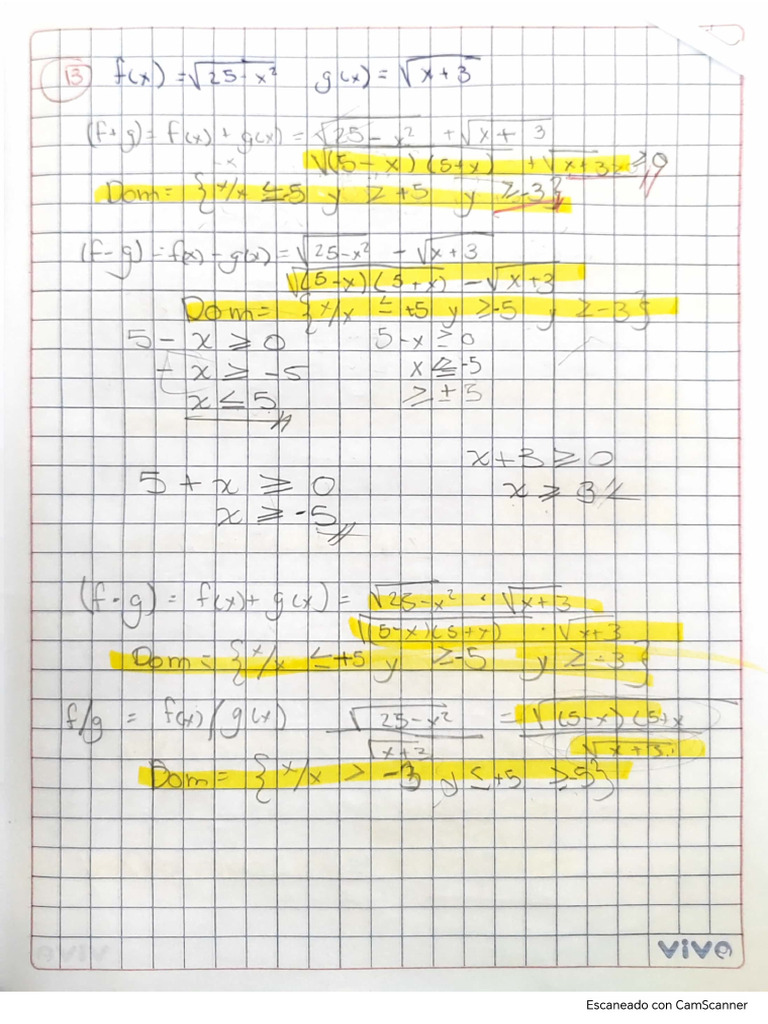 13 f(x) = √25-x² g(x) = √x+3
(f+g) = f(x) + g(x) = √25-x² + √x+3
√(5-x)(5+x) + √x+3 ≥0
Dom = {x/x ≤-5 y ≥ +5 y ≥-3}
(f-g) = f(x) - g(x) = √25-x² - √x+3
√(5-x)(5+x) - √x+3
Dom = {x/x ≤ +5 y ≥-5 y ≥ -3}
5 - x ≥ 0 5-x ≥ 0
- x ≥ -5 x ≤ -5
x ≤ 5 ≥ ±5
x+3 ≥ 0
5 + x ≥ 0
x ≥ 3
x ≥ -5
(f·g) = f(x)+ g(x) = √25-x² · √x+3
√(5-x)(5+x) · √x+3
Dom = {x/x ≤ +5 y ≥-5 y ≥ -3}
f/g = f(x)/g(x) √25-x² = √(5-x)(5+x
√x+3 √x+3
Dom = {x/x > -3 y ≤ +5 ≥-5}
vive
Escaneado con CamScanner